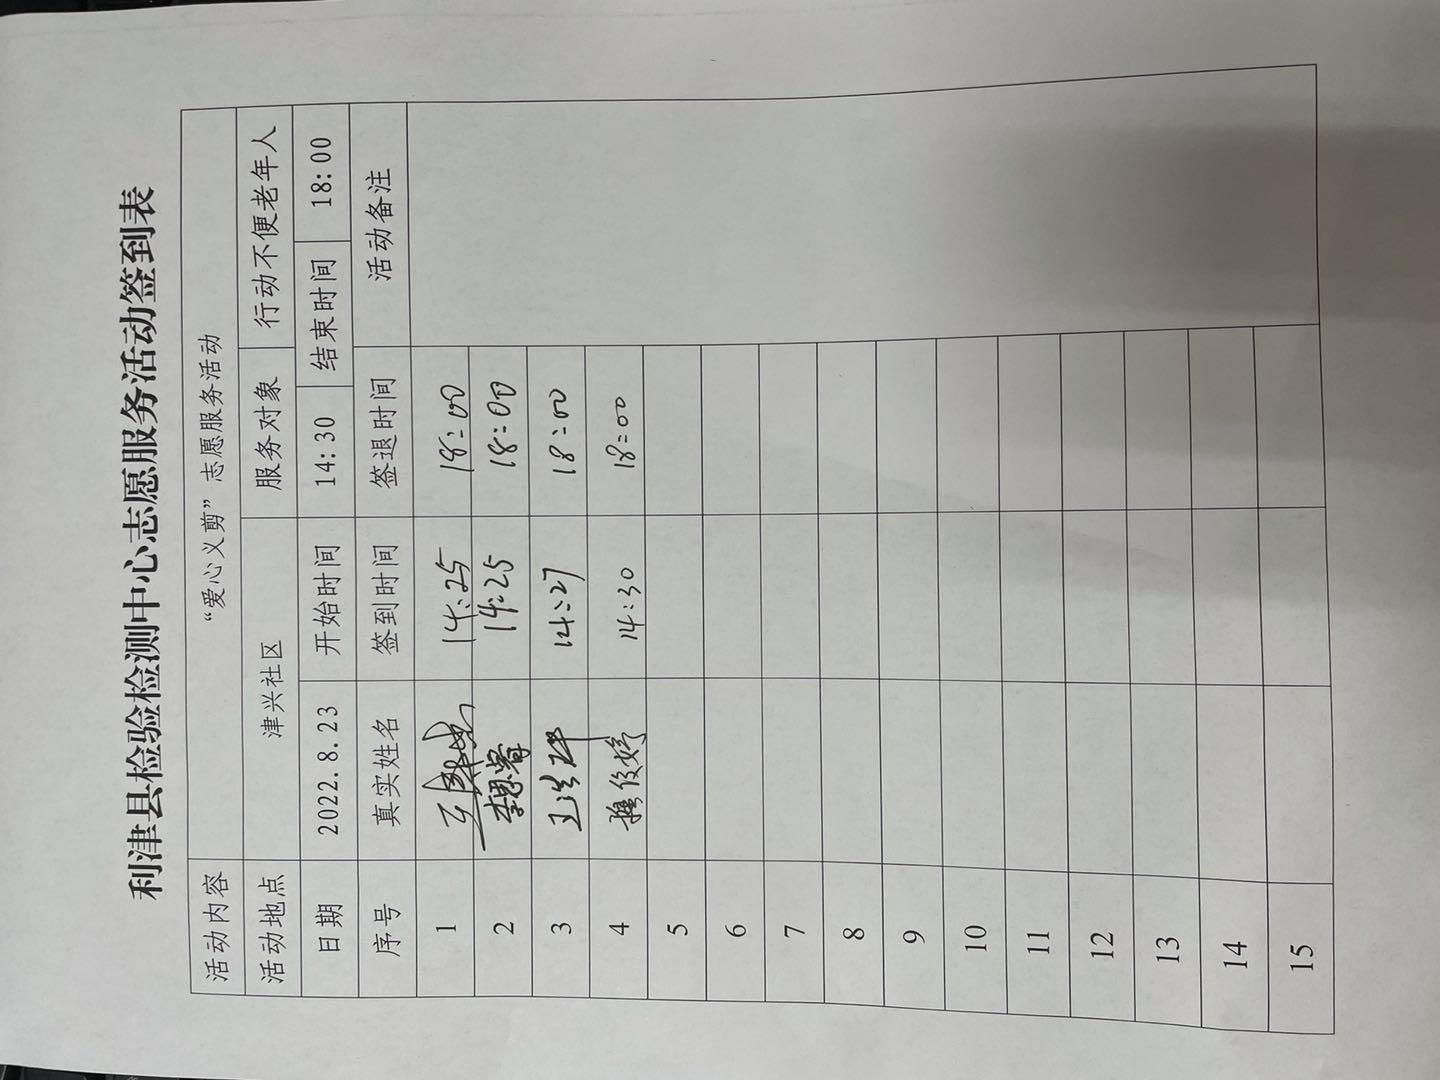 利津县检验检测中心志愿服务活动签到表
活动内容 “爱心义剪”志愿服务活动
活动地点 津兴社区 服务对象 行动不便老年人
日期 2022.8.23 开始时间 14:30 结束时间 18:00
序号 真实姓名 签到时间 签退时间 活动备注
1 14:25 18:00
2 李思睿 14:25 18:00
3 14:27 18:00
4 14:30 18:00
5
6
7
8
9
10
11
12
13
14
15